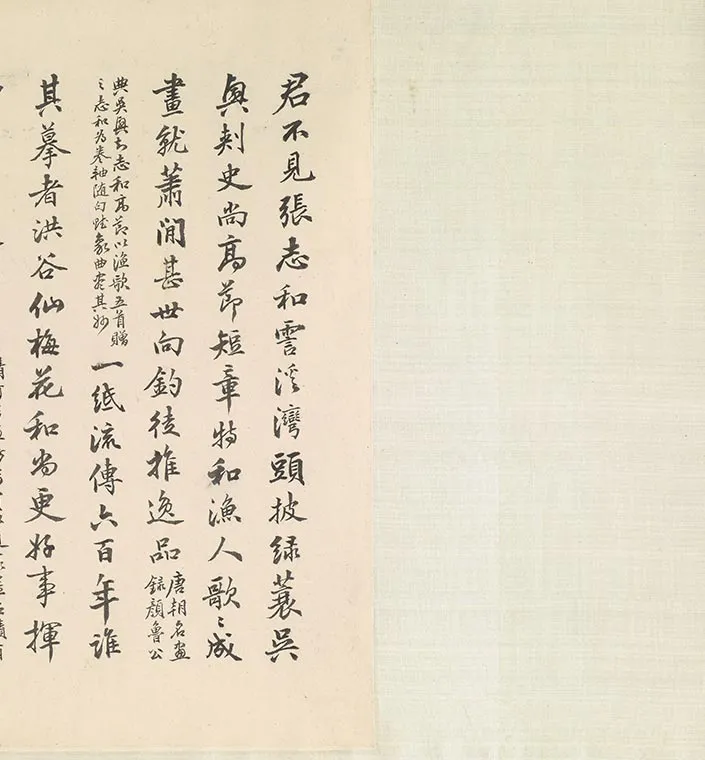 君不見張志和霅溪灣頭披綠蓑吳
興刺史尚高節短章特和漁人歌〻成
畫就蕭閒甚世向釣徒推逸品唐朝名畫
錄顏魯公
典吳興知志和高節以漁歌五首贈
之志和為卷軸隨句賦象曲盡其妙
一紙流傳六百年誰
其摹者洪谷仙梅花和尚更好事揮